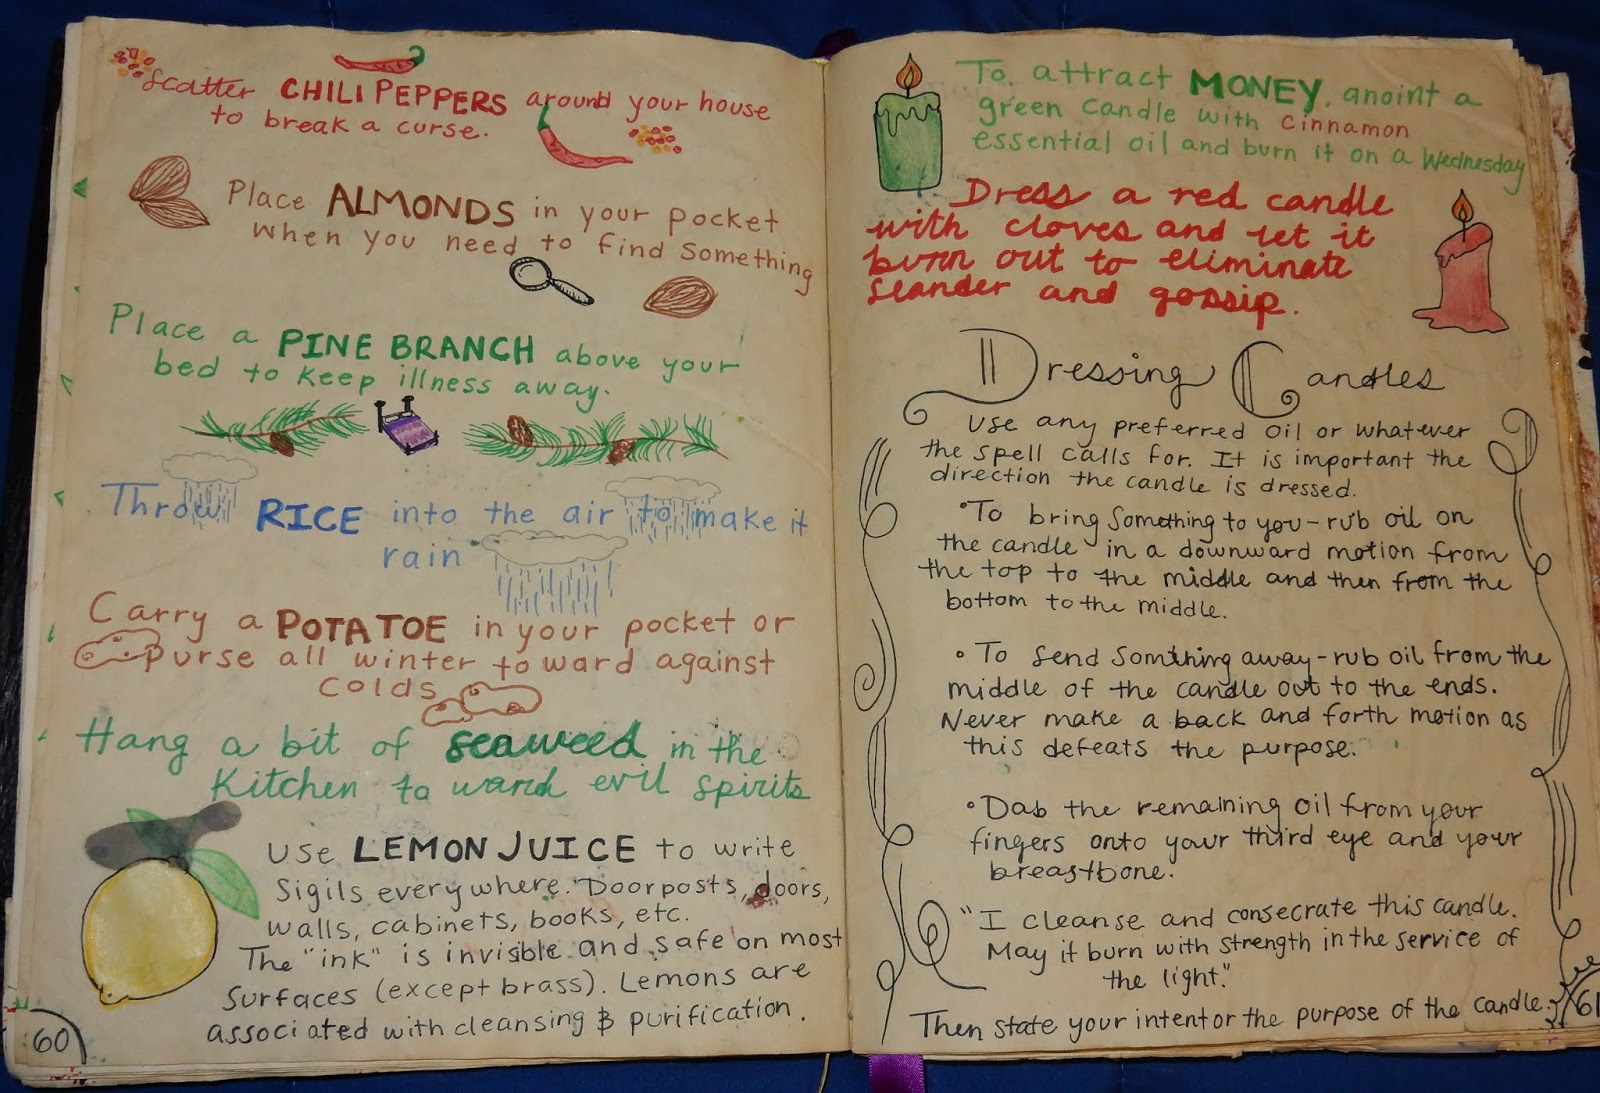 Scatter CHILI PEPPERS around your house
to break a curse.
Place ALMONDS in your pocket
when you need to find something
Place a PINE BRANCH above your
bed to keep illness away.
Throw RICE into the air to make it
rain
Carry a POTATOE in your pocket or
purse all winter to ward against
colds
Hang a bit of seaweed in the
Kitchen to ward evil spirits
Use LEMON JUICE to write
Sigils everywhere. Doorposts, doors,
walls, cabinets, books, etc.
The "ink" is invisible and safe on most
surfaces (except brass). Lemons are
associated with cleansing & purification.
60
To attract MONEY, anoint a
green candle with cinnamon
essential oil and burn it on a Wednesday
Dress a red candle
with cloves and let it
burn out to eliminate
slander and gossip.
Dressing Candles
Use any preferred oil or whatever
the spell calls for. It is important the
direction the candle is dressed.
• To bring something to you - rub oil on
the candle in a downward motion from
the top to the middle and then from the
bottom to the middle.
• To send somthing away - rub oil from the
middle of the candle out to the ends.
Never make a back and forth motion as
this defeats the purpose.
• Dab the remaining oil from your
fingers onto your third eye and your
breastbone.
"I cleanse and consecrate this candle.
May it burn with strength in the service of
the light."
Then state your intent or the purpose of the candle.
61